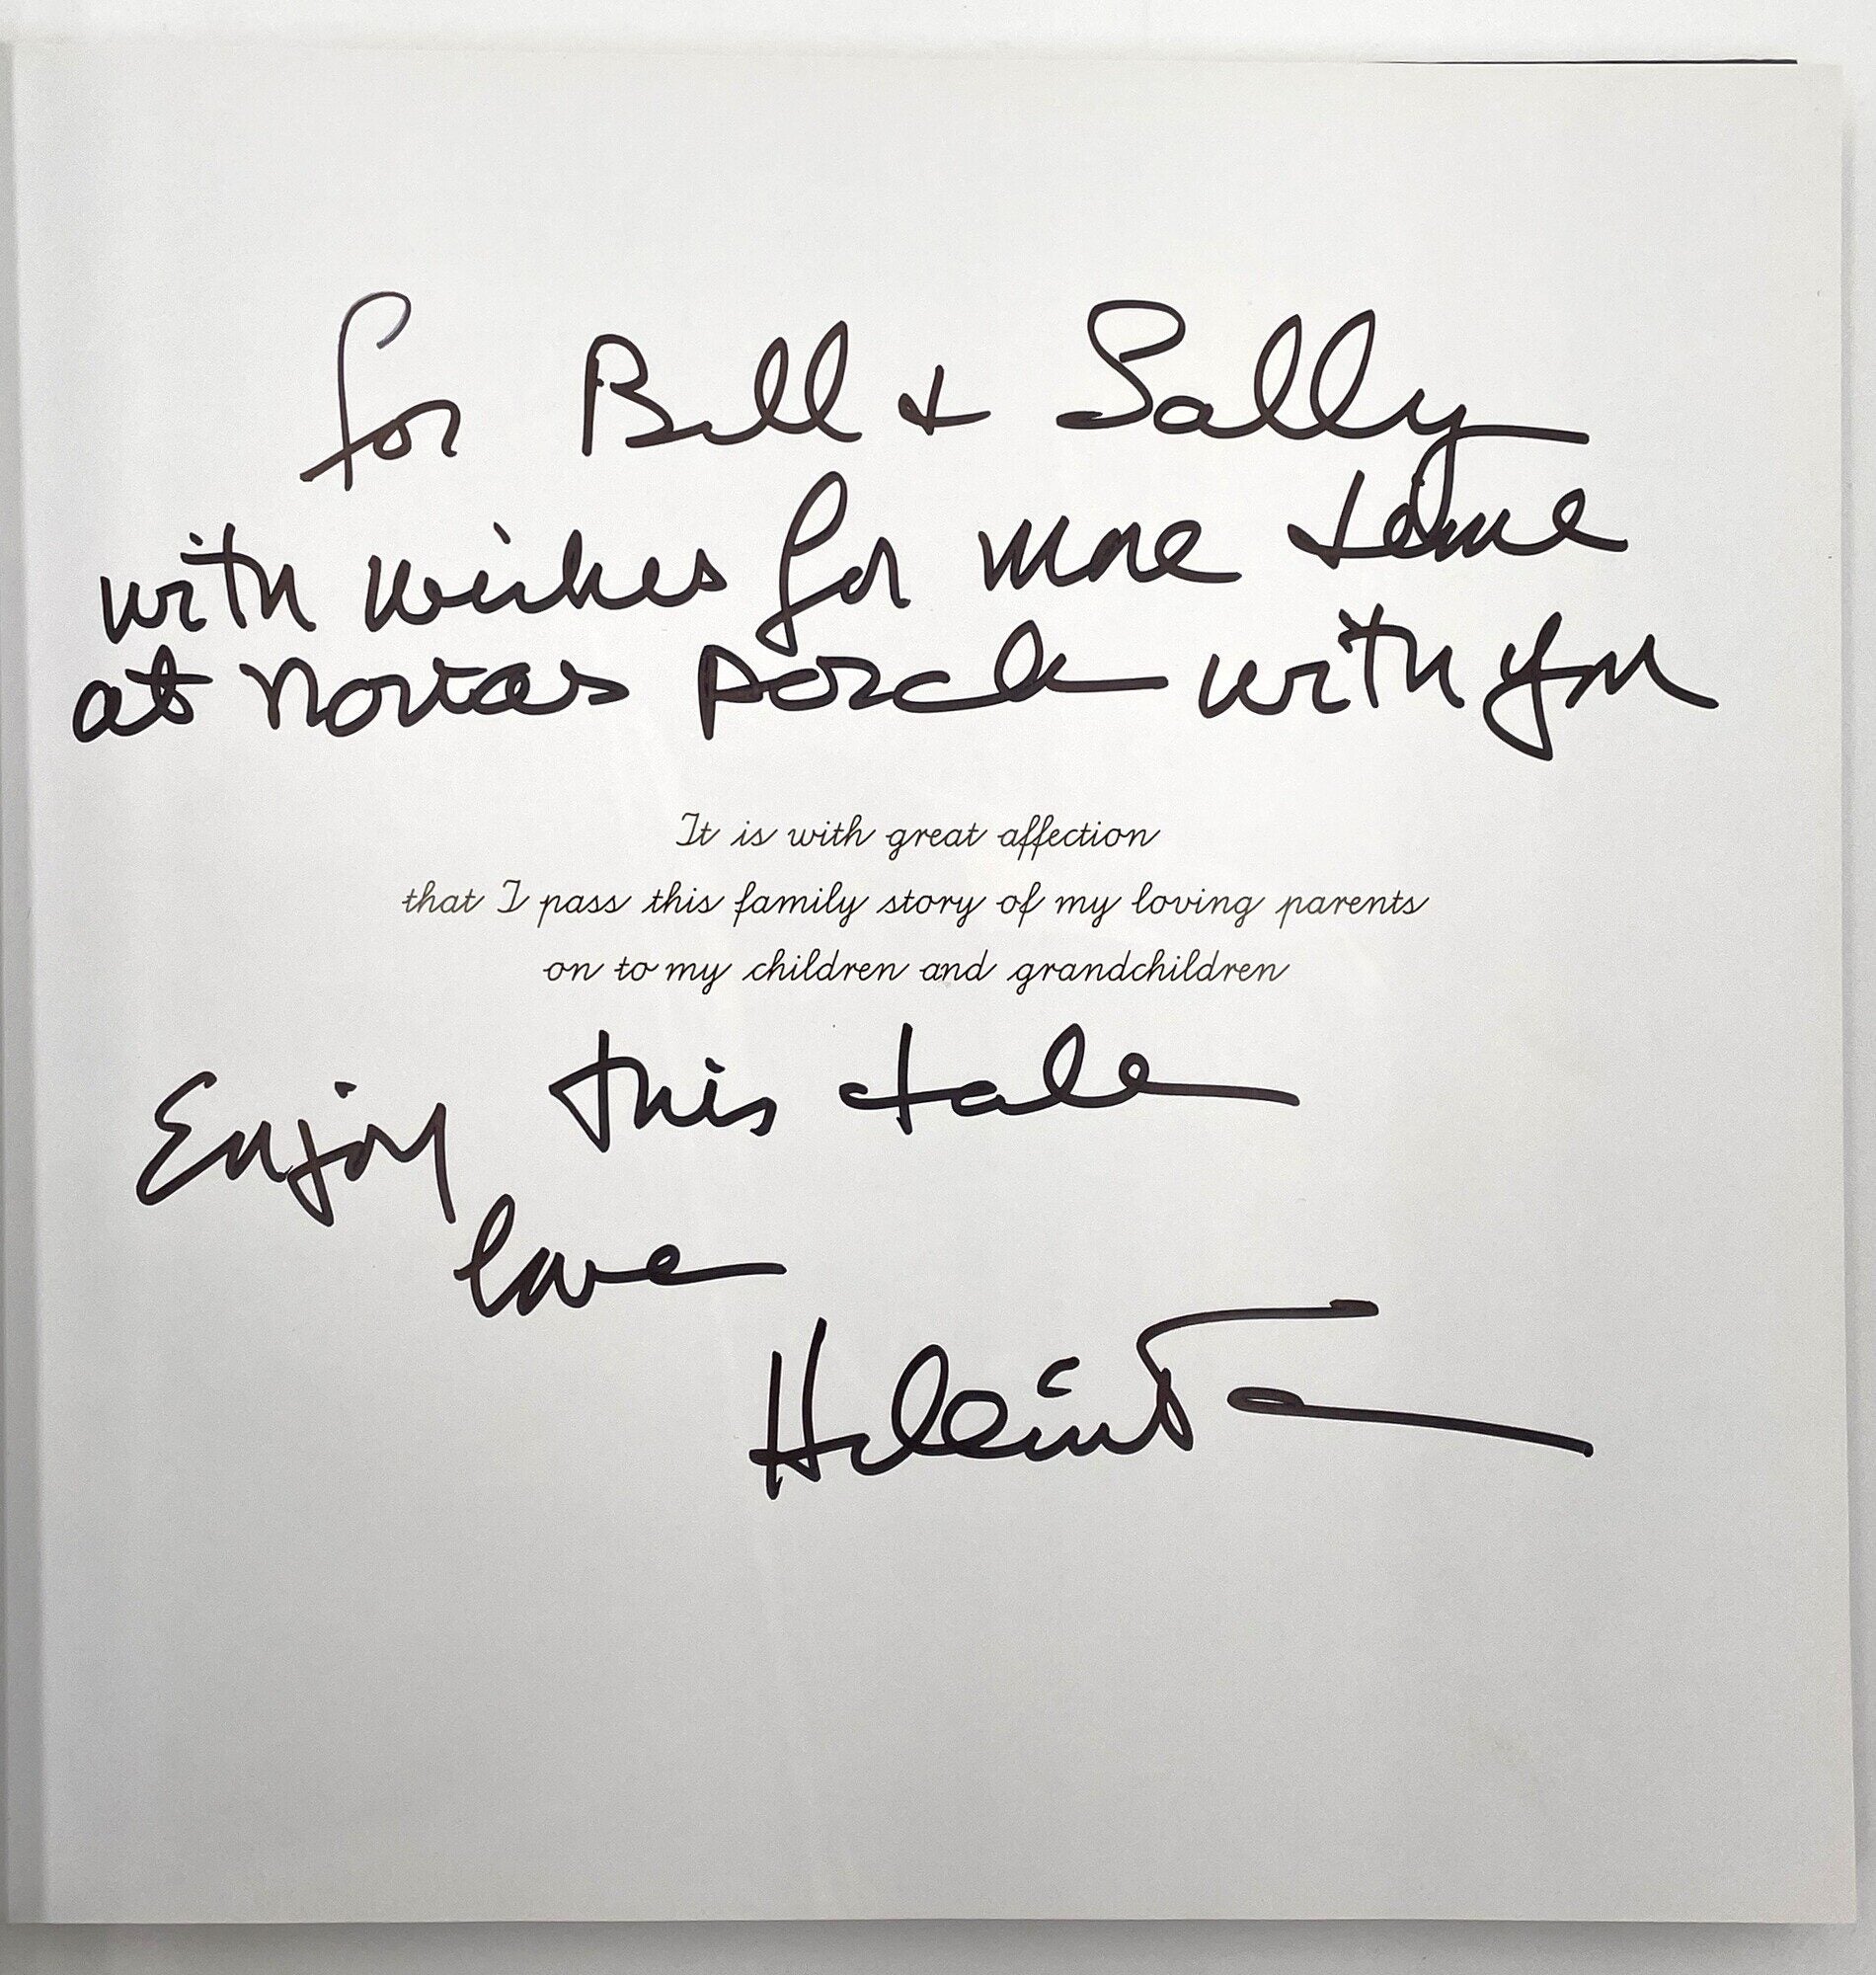 for Bill + Sally
with wishes for more time
at Norias porch with you
It is with great affection
that I pass this family story of my loving parents
on to my children and grandchildren
Enjoy this tale
love